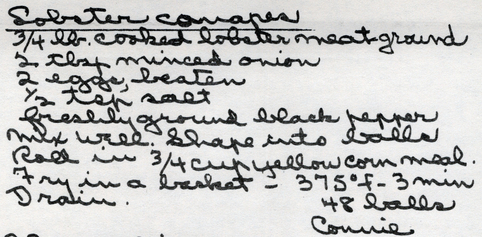 Lobster canapes
3/4 lb. cooked lobster meat-ground
2 tbsp minced onion
2 eggs, beaten
1/2 tsp salt
freshly ground black pepper
Mix well. Shape into balls
Roll in 3/4 cup yellow corn meal.
Fry in a basket - 375°f - 3 min
Drain. 48 balls
Connie